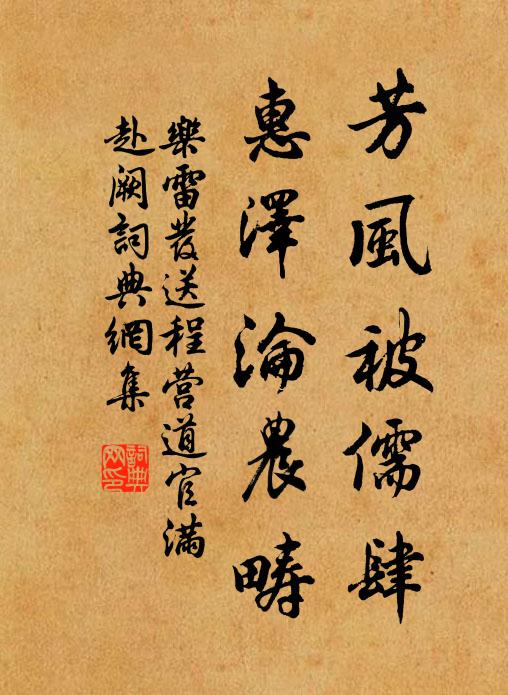 芳風被儒肆
惠澤淪農疇
樂雷發送程营道官滿
赴阙詞典網集
詞典網印